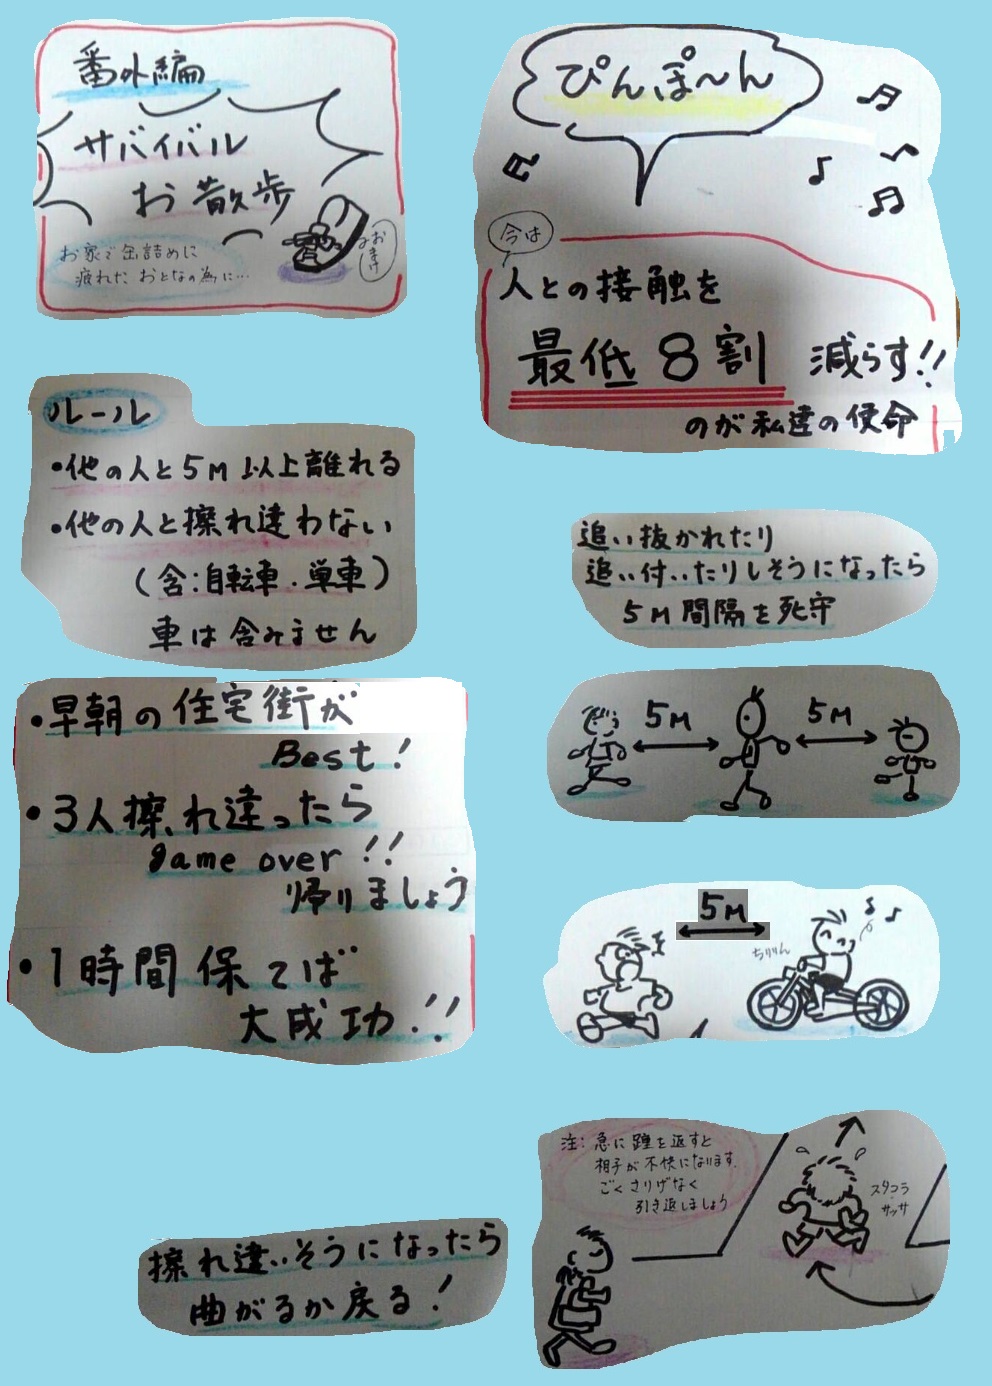 番外編
サバイバル
お散歩
お家で缶詰めに
疲れた おとなの為に…
おまけ
ぴんぽ〜ん
今は
人との接触を
最低8割 減らす!!
のが私達の使命
ルール
•他の人と5M以上離れる
•他の人と擦れ違わない
(含:自転車.単車)
車は含みません
追い抜かれたり
追い付いたりしそうになったら
5M間隔を死守
5M 5M
•早朝の住宅街が
Best!
•3人擦れ違ったら
game over!!
帰りましょう
•1時間保てば
大成功!!
5M
ちりりん
注:急に踵を返すと
相手が不快になります.
ごくさりげなく
引き返しましょう
スタコラ
サッサ
擦れ違いそうになったら
曲がるか戻る!